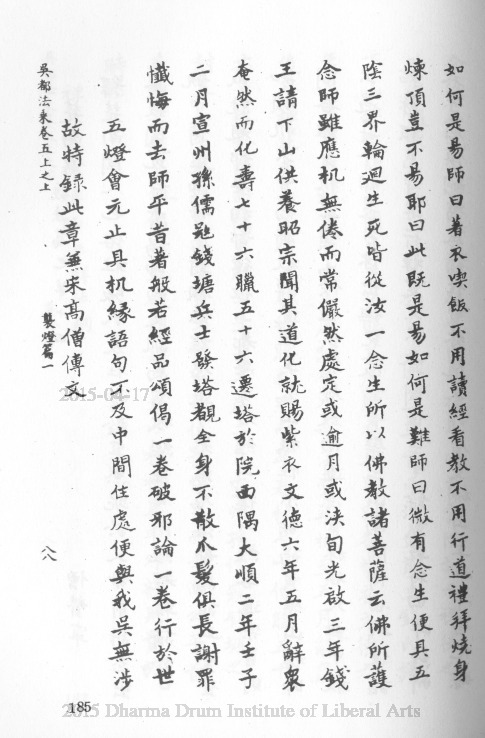 如何是易師曰著衣喫飯不用讀經看教不用行道禮拜燒身
煉頂豈不易耶曰此既是易如何是難師曰微有念生便具五
陰三界輪迴生死皆從汝一念生所以佛教諸菩薩云佛所護
念師雖應机無倦而常儼然處定或逾月或浹旬光啟三年錢
王請下山供養昭宗聞其道化就賜紫衣文德六年五月辭眾
奄然而化壽七十六臘五十六遷塔於院西隅大順二年壬子
二月宣州孫儒寇錢塘兵士發塔覩全身不散爪髮俱長謝罪
懺悔而去師平昔著般若經品頌偈一卷破邪論一卷行於世
五燈會元止具机緣語句不及中間住處便與我吳無涉
故特錄此章無宋高僧傳文
吳都法乘卷五上之上
襲燈篇一
八八
185
2015-04-17
2015 Dharma Drum Institute of Liberal Arts